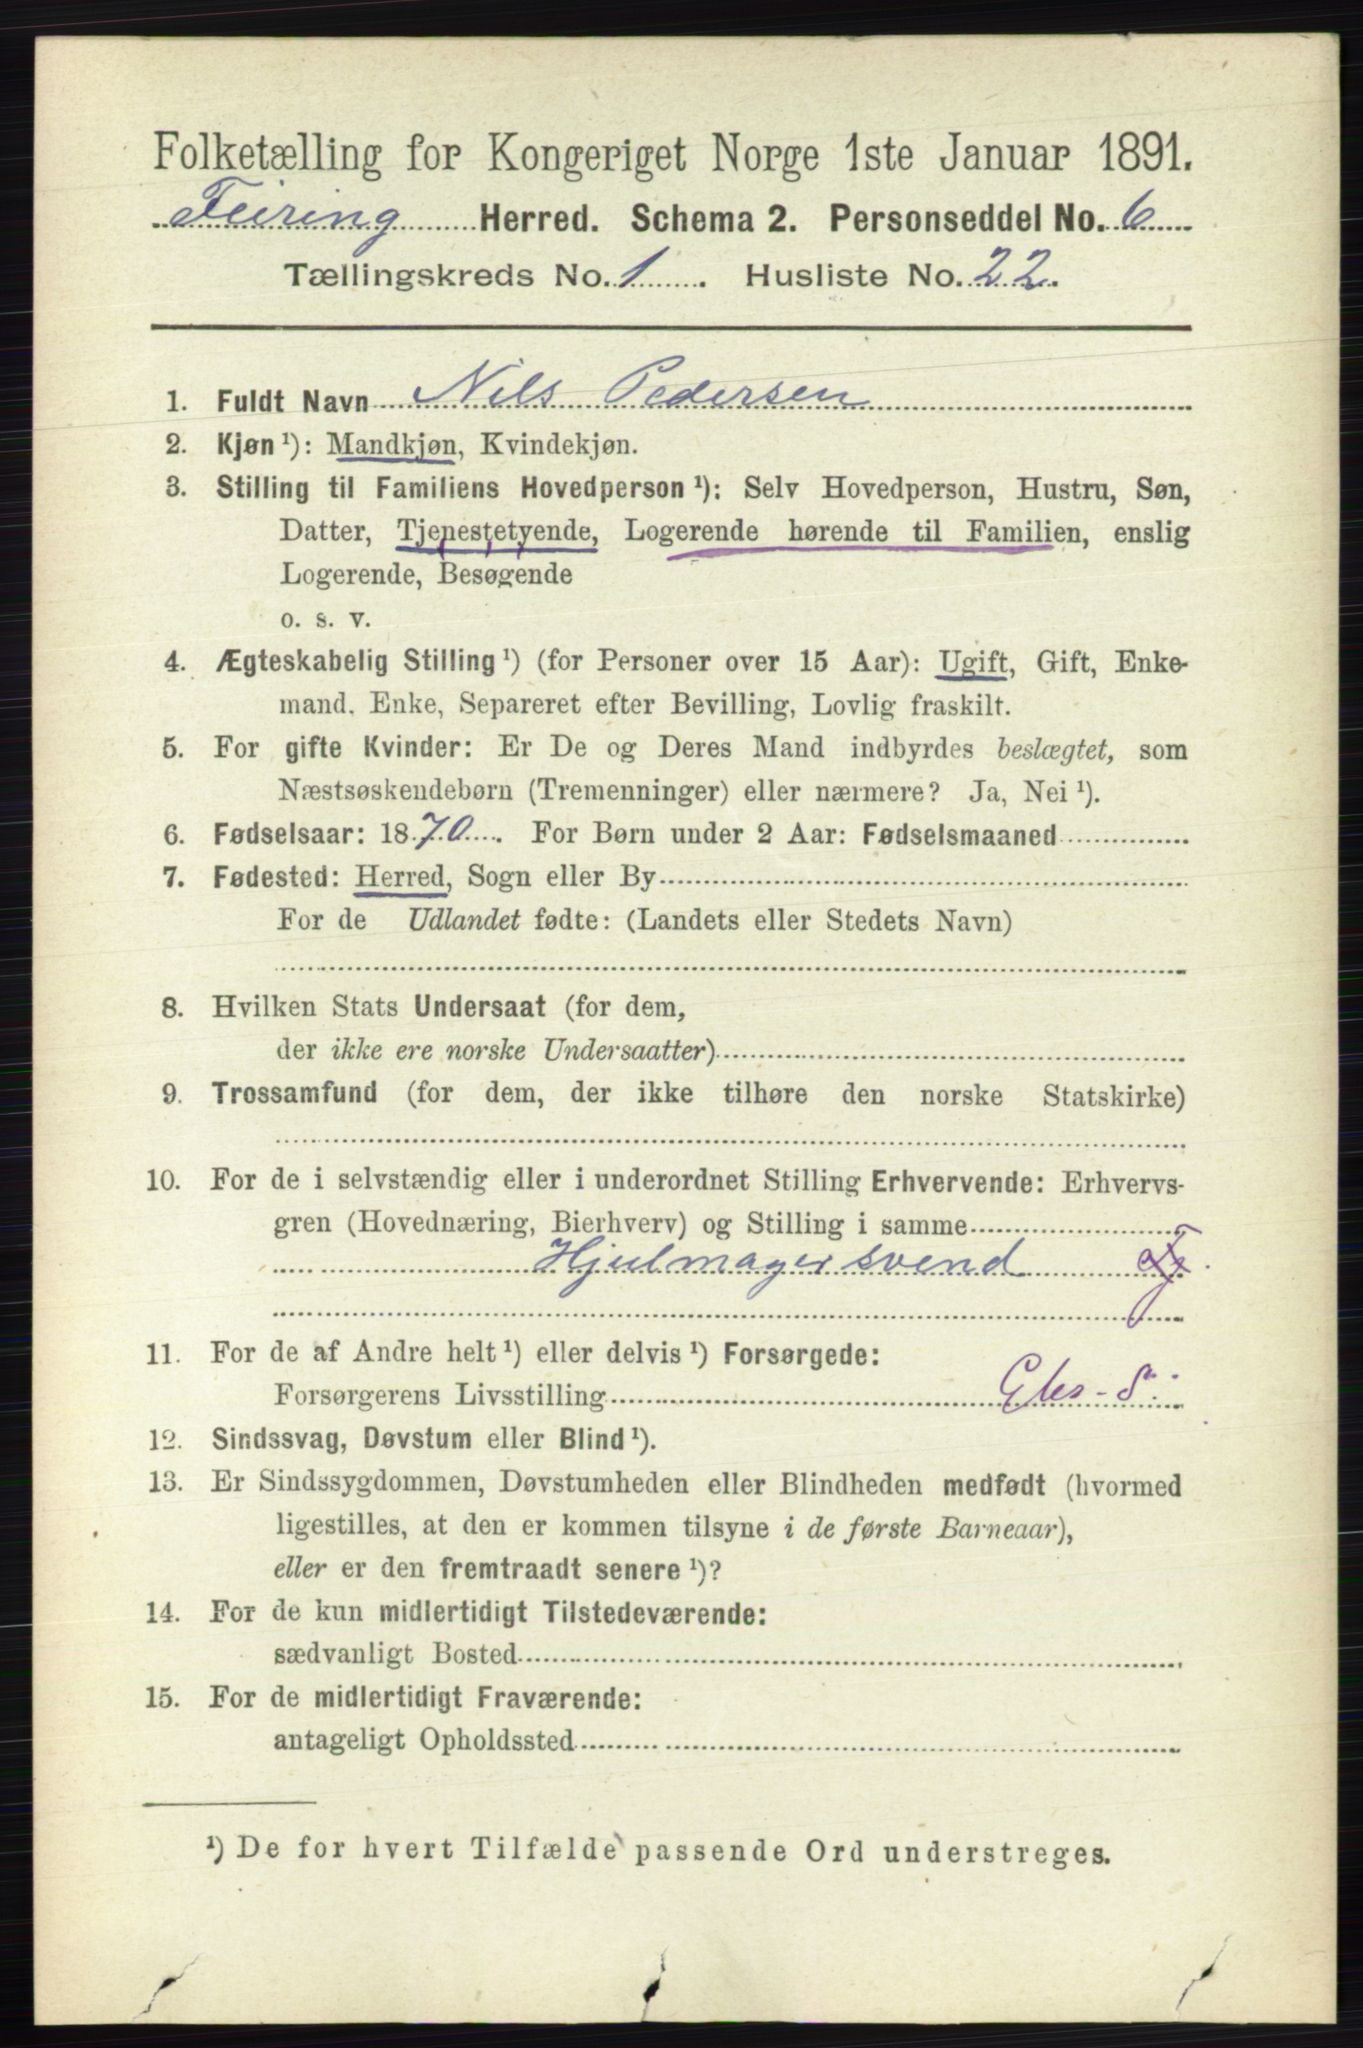 Folketælling for Kongeriget Norge 1ste Januar 1891.
Feiring Herred. Schema 2. Personseddel No. 6
Tællingskreds No. 1. Husliste No. 22.
1. Fuldt Navn Nils Pedersen
2. Kjøn ¹): Mandkjøn, Kvindekjøn.
3. Stilling til Familiens Hovedperson ¹): Selv Hovedperson, Hustru, Søn,
Datter, Tjenestetyende, Logerende hørende til Familien, enslig
Logerende, Besøgende
o. s. v.
4. Ægteskabelig Stilling ¹) (for Personer over 15 Aar): Ugift, Gift, Enke-
mand, Enke, Separeret efter Bevilling, Lovlig fraskilt.
5. For gifte Kvinder: Er De og Deres Mand indbyrdes beslægtet, som
Næstsøskendebørn (Tremenninger) eller nærmere? Ja, Nei ¹).
6. Fødselsaar: 1870. For Børn under 2 Aar: Fødselsmaaned
7. Fødested: Herred, Sogn eller By
For de Udlandet fødte: (Landets eller Stedets Navn)
8. Hvilken Stats Undersaat (for dem,
der ikke ere norske Undersaatter)
9. Trossamfund (for dem, der ikke tilhøre den norske Statskirke)
10. For de i selvstændig eller i underordnet Stilling Erhvervende: Erhvervs-
gren (Hovednæring, Bierhverv) og Stilling i samme
Hjulmagersvend
11. For de af Andre helt ¹) eller delvis ¹) Forsørgede:
Forsørgerens Livsstilling
12. Sindssvag, Døvstum eller Blind ¹).
13. Er Sindssygdommen, Døvstumheden eller Blindheden medfødt (hvormed
ligestilles, at den er kommen tilsyne i de første Barneaar),
eller er den fremtraadt senere ¹)?
14. For de kun midlertidigt Tilstedeværende:
sædvanligt Bosted
15. For de midlertidigt Fraværende:
antageligt Opholdssted
¹) De for hvert Tilfælde passende Ord understreges.